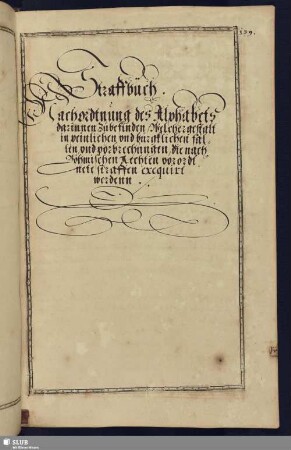 139.
Straffbuch.
Nachordnung des Alphabets
darinnen Zubefinden Welchergestalt
in peinlichen und burgklichen fäl-
len und vorbrechunden, die nach
Bohmischen Rechten verordi
nete straffen exequirt
werdenn.
SLUB